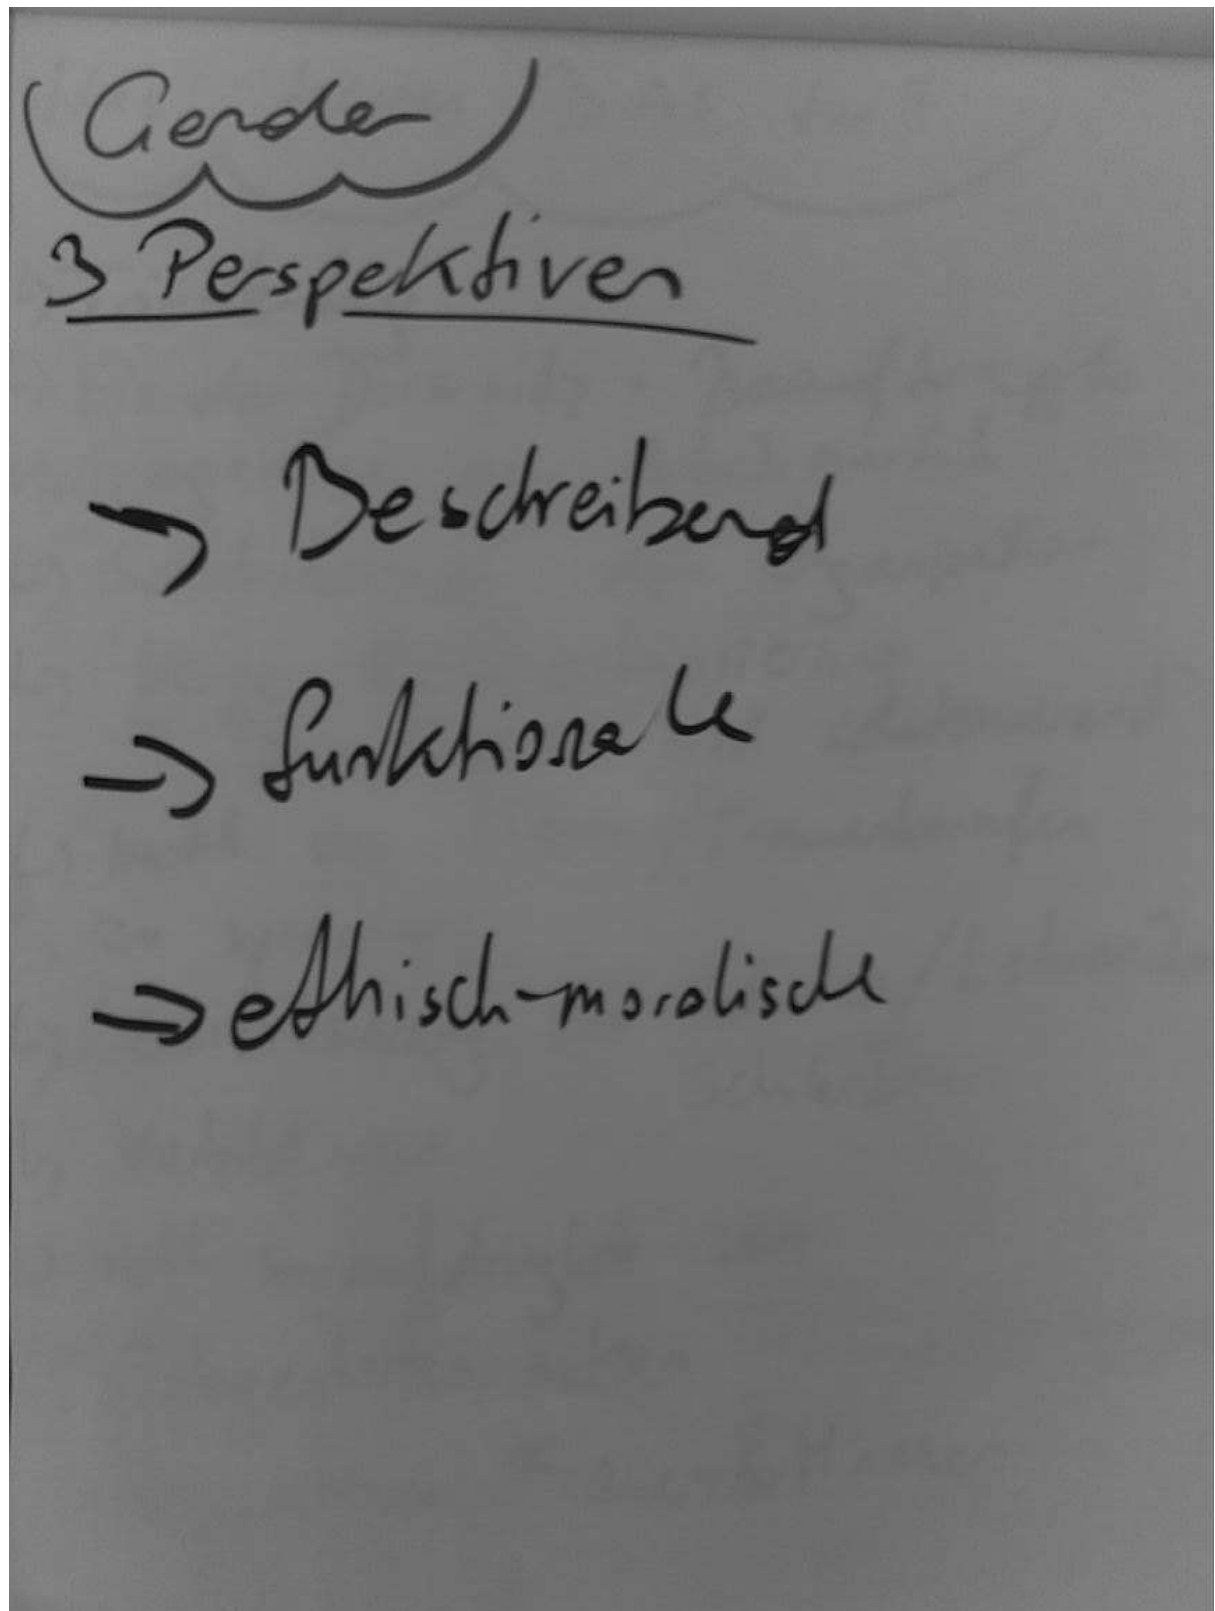 Gender
3 Perspektiven
→ Beschreibend
→ funktionale
→ ethisch-moralische